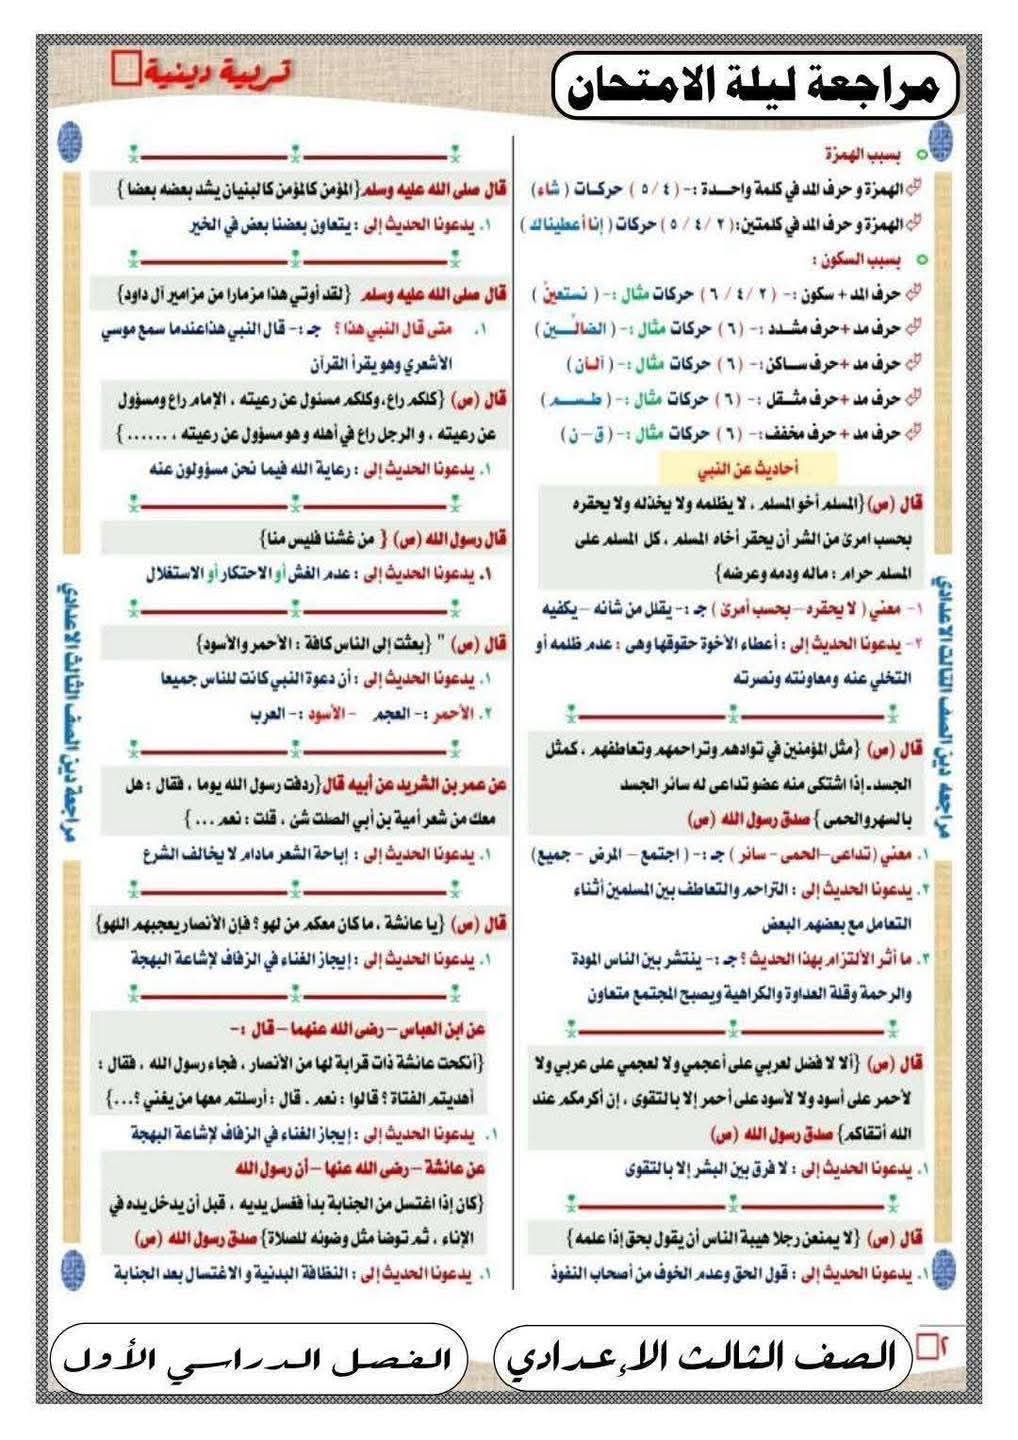 مراجعة ليلة الامتحان
تربية دينية
بسبب الهمزة
الهمزة و حرف المد في كلمة واحدة :- ( ٤ / ٥ ) حركات ( شاء )
الهمزة و حرف المد في كلمتين: ( ٢ / ٤ / ٥ ) حركات ( إنا أعطيناك )
بسبب السكون :
حرف المد + سكون :- ( ٢ / ٤ / ٦ ) حركات مثال :- ( نستعينْ )
حرف مد +حرف مشدد :- ( ٦ ) حركات مثال :- ( الضالّـين )
حرف مد +حرف ساكن :- ( ٦ ) حركات مثال :- ( آلـان )
حرف مد +حرف مثـقل :- ( ٦ ) حركات مثال :- ( طـسـم )
حرف مد + حرف مخفف:- ( ٦ ) حركات مثال :- ( ق – ن )
أحاديث عن النبي
قال (ص) {المسلم أخو المسلم ، لا يظلمه ولا يخذله ولا يحقره
بحسب امرئ من الشر أن يحقر أخاه المسلم ، كل المسلم على
المسلم حرام : ماله ودمه وعرضه}
١- معني ( لا يحقره – بحسب أمرئ ) جـ :- يقلل من شانه – يكفيه
٢- يدعونا الحديث إلى : أعطاء الأخوة حقوقها وهى : عدم ظلمه أو
التخلي عنه ومعاونته ونصرته
قال (ص) {مثل المؤمنين في توادهم وتراحمهم وتعاطفهم ، كمثل
الجسد ـ إذا اشتكى منه عضو تداعى له سائر الجسد
بالسهر والحمى } صدق رسول الله (ص)
١. معني (تداعى–الحمى - سائر ) جـ :- ( اجتمع – المرض - جميع)
٢. يدعونا الحديث إلى : التراحم والتعاطف بين المسلمين أثناء
التعامل مع بعضهم البعض
٣. ما أثر الألتزام بهذا الحديث ؟ جـ :- ينتشر بين الناس المودة
والرحمة وقلة العداوة والكراهية ويصبح المجتمع متعاون
قال (ص) {ألا لا فضل لعربي على أعجمي ولا لعجمي على عربي ولا
لأحمر على أسود ولا لأسود على أحمر إلا بالتقوى ، إن أكرمكم عند
الله أتقاكم} صدق رسول الله (ص)
١. يدعونا الحديث إلى : لا فرق بين البشر إلا بالتقوى
قال (ص) {لا يمنعن رجلا هيبة الناس أن يقول بحق إذا علمه}
١. يدعونا الحديث إلى : قول الحق وعدم الخوف من أصحاب النفوذ
قال صلى الله عليه وسلم {المؤمن كالمؤمن كالبنيان يشد بعضه بعضا }
١. يدعونا الحديث إلى : يتعاون بعضنا بعض في الخير
قال صلى الله عليه وسلم {لقد أوتي هذا مزمارا من مزامير آل داود}
١. متى قال النبي هذا ؟ جـ :- قال النبي هذا عندما سمع موسي
الأشعري وهو يقرأ القرآن
قال (ص) {كلكم راع، وكلكم مسئول عن رعيته ، الإمام راع ومسؤول
عن رعيته ، و الرجل راع في أهله و هو مسؤول عن رعيته ، ...... }
١. يدعونا الحديث إلى : رعاية الله فيما نحن مسؤولون عنه
قال رسول الله (ص) { من غشنا فليس منا}
١. يدعونا الحديث إلى : عدم الغش أو الاحتكار أو الاستغلال
قال (ص) " {بعثت إلى الناس كافة : الأحمر والأسود}
١. يدعونا الحديث إلى : أن دعوة النبي كانت للناس جميعا
٢. الأحمر :- العجم - الأسود :- العرب
عن عمر بن الشريد عن أبيه قال {ردفت رسول الله يوما ، فقال : هل
معك من شعر أمية بن أبي الصلت شئ ، قلت : نعم ... }
١. يدعونا الحديث إلى : إباحة الشعر مادام لا يخالف الشرع
قال (ص) {يا عائشة ، ما كان معكم من لهو ؟ فإن الأنصار يعجبهم اللهو}
١. يدعونا الحديث إلى : إيجاز الغناء في الزفاف لإشاعة البهجة
عن ابن العباس – رضى الله عنهما – قال :-
{أنكحت عائشة ذات قرابة لها من الأنصار ، فجاء رسول الله ، فقال :
أهديتم الفتاة ؟ قالوا : نعم ، قال : أرسلتم معها من يغني ؟...}
١. يدعونا الحديث إلى : إيجاز الغناء في الزفاف لإشاعة البهجة
عن عائشة – رضى الله عنها – أن رسول الله
{كان إذا اغتسل من الجنابة بدأ فغسل يديه ، قبل أن يدخل يده في
الإناء ، ثم توضأ مثل وضوئه للصلاة} صدق رسول الله (ص)
١. يدعونا الحديث إلى : النظافة البدنية و الاغتسال بعد الجنابة
مراجعة دين الصف الثالث الاعدادي
مراجعة دين الصف الثالث الاعدادي
٢
الصف الثالث الإعدادي
الفصل الدراسي الأول